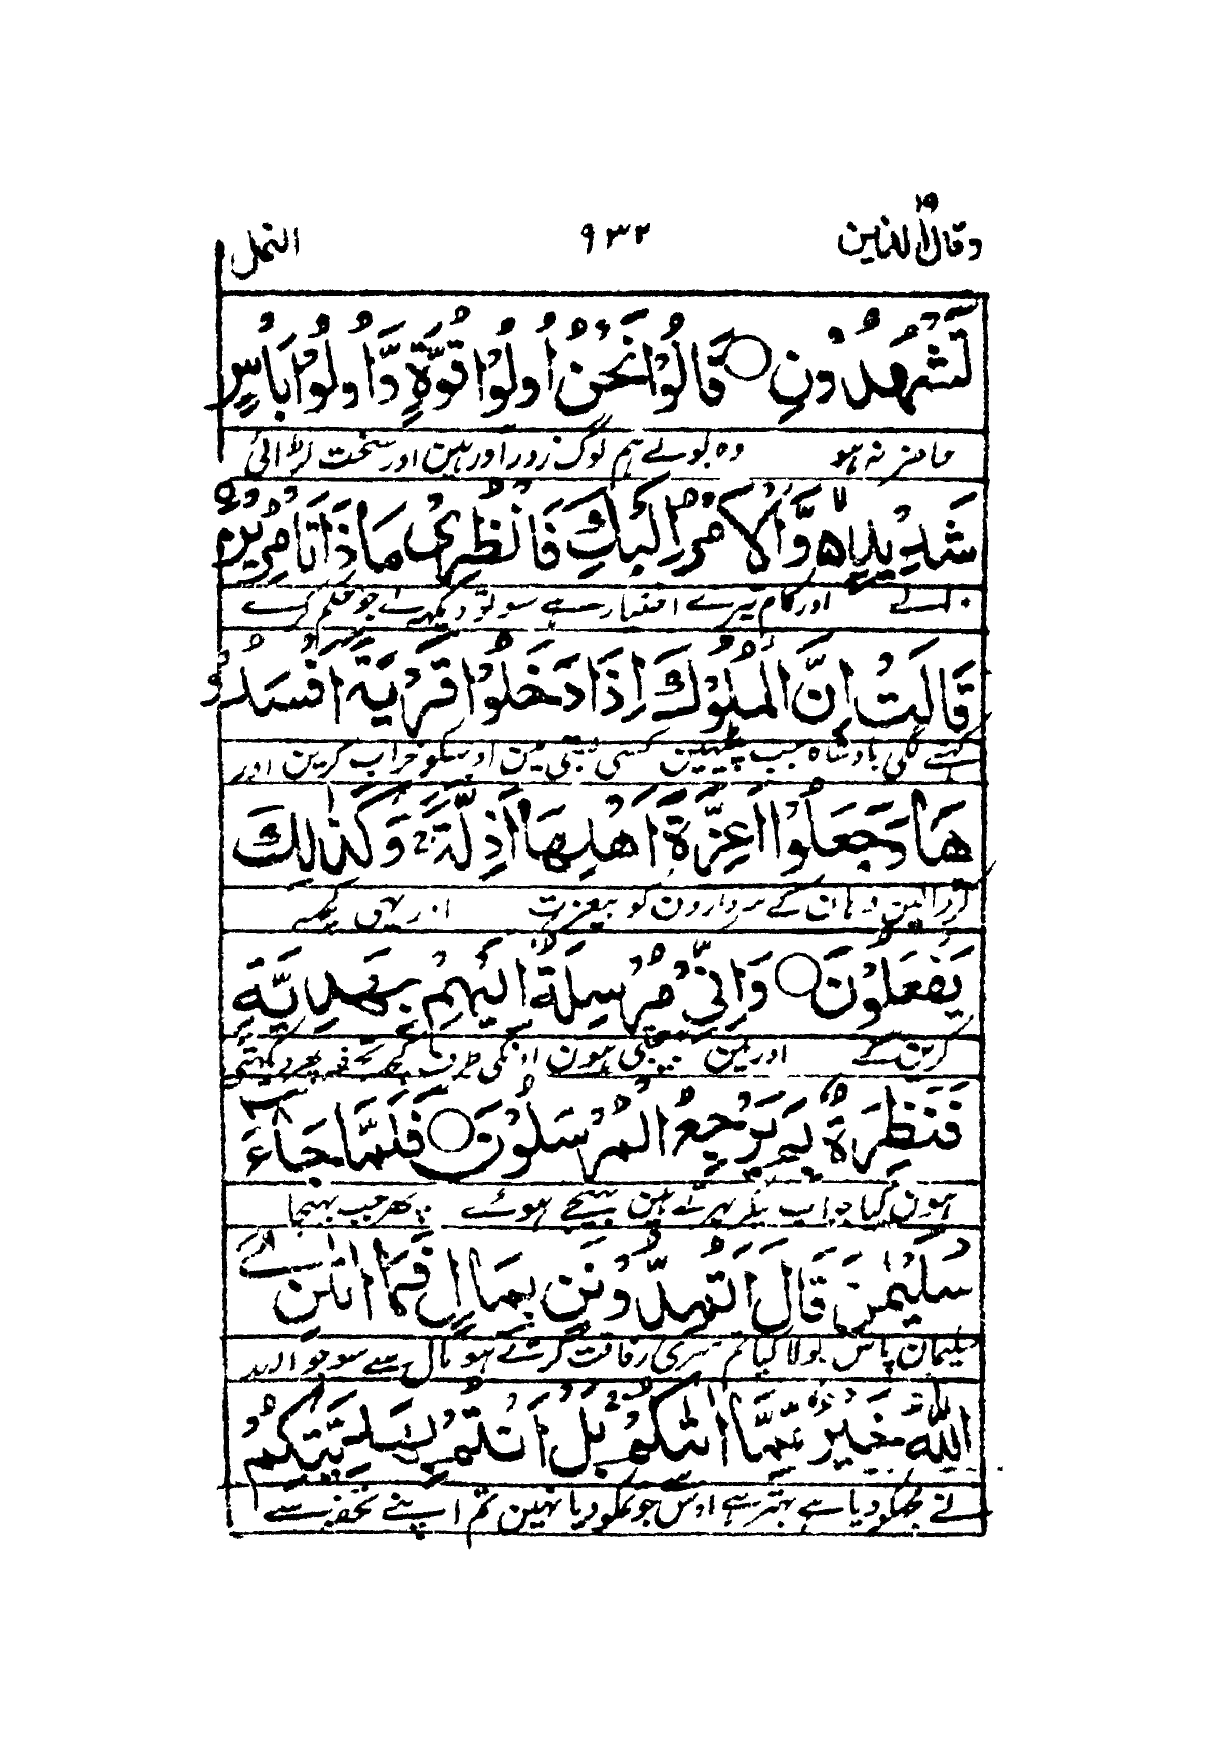 وقال الذين ١٩ ٩٣٢ النمل
تَشْهَدُوْنِ ○ قَالُوْا نَحْنُ اُولُوْا قُوَّةٍ وَّاُولُوْا بَاْسٍ
حاضر نہ ہو وہ بولے ہم لوگ زور آور ہین اور سخت لڑائی
شَدِيْدٍ ۙ وَّالْاَمْرُ اِلَيْكِ فَانْظُرِيْ مَاذَا تَاْمُرِيْنَ
والے اور کام تیرے اختیار ہے سو تو دیکھ لے جو حکم کرے
قَالَتْ اِنَّ الْمُلُوْكَ اِذَا دَخَلُوْا قَرْيَةً اَفْسَدُوْ
کہنے لگی بادشاہ جب پیٹھین کسی بستی مین اوسکو خراب کرین اور
هَا وَجَعَلُوْا اَعِزَّةَ اَهْلِهَا اَذِلَّةً ۚ وَكَذٰلِكَ
کر ڈالین وہان کے سردارون کو بیعزت اور یہی کچھ
يَفْعَلُوْنَ ○ وَاِنِّيْ مُرْسِلَةٌ اِلَيْهِمْ بِهَدِيَّةٍ
کرین گے اور مین بھیجتی ہون اونکی طرف کچھ تحفہ پھر دیکھتی
فَنٰظِرَةٌ بِمَ يَرْجِعُ الْمُرْسَلُوْنَ ○ فَلَمَّا جَآءَ
ہون کیا جواب لیکر پھرتے ہین بھیجے ہوئے پھر جب پہنچا
سُلَيْمٰنَ قَالَ اَتُمِدُّوْنَنِ بِمَالٍ فَمَا اٰتٰنِۦَ
سلیمان پاس بولا کیا تم میری رفاقت کرتے ہو مال سے سو جو اللہ
اللّٰهُ خَيْرٌ مِّمَّا اٰتٰكُمْ ۚ بَلْ اَنْتُمْ بِهَدِيَّتِكُمْ
نے مجھکو دیا ہے بہتر ہے اوس جو تمکو دیا نہین تم اپنے تحفہ سے